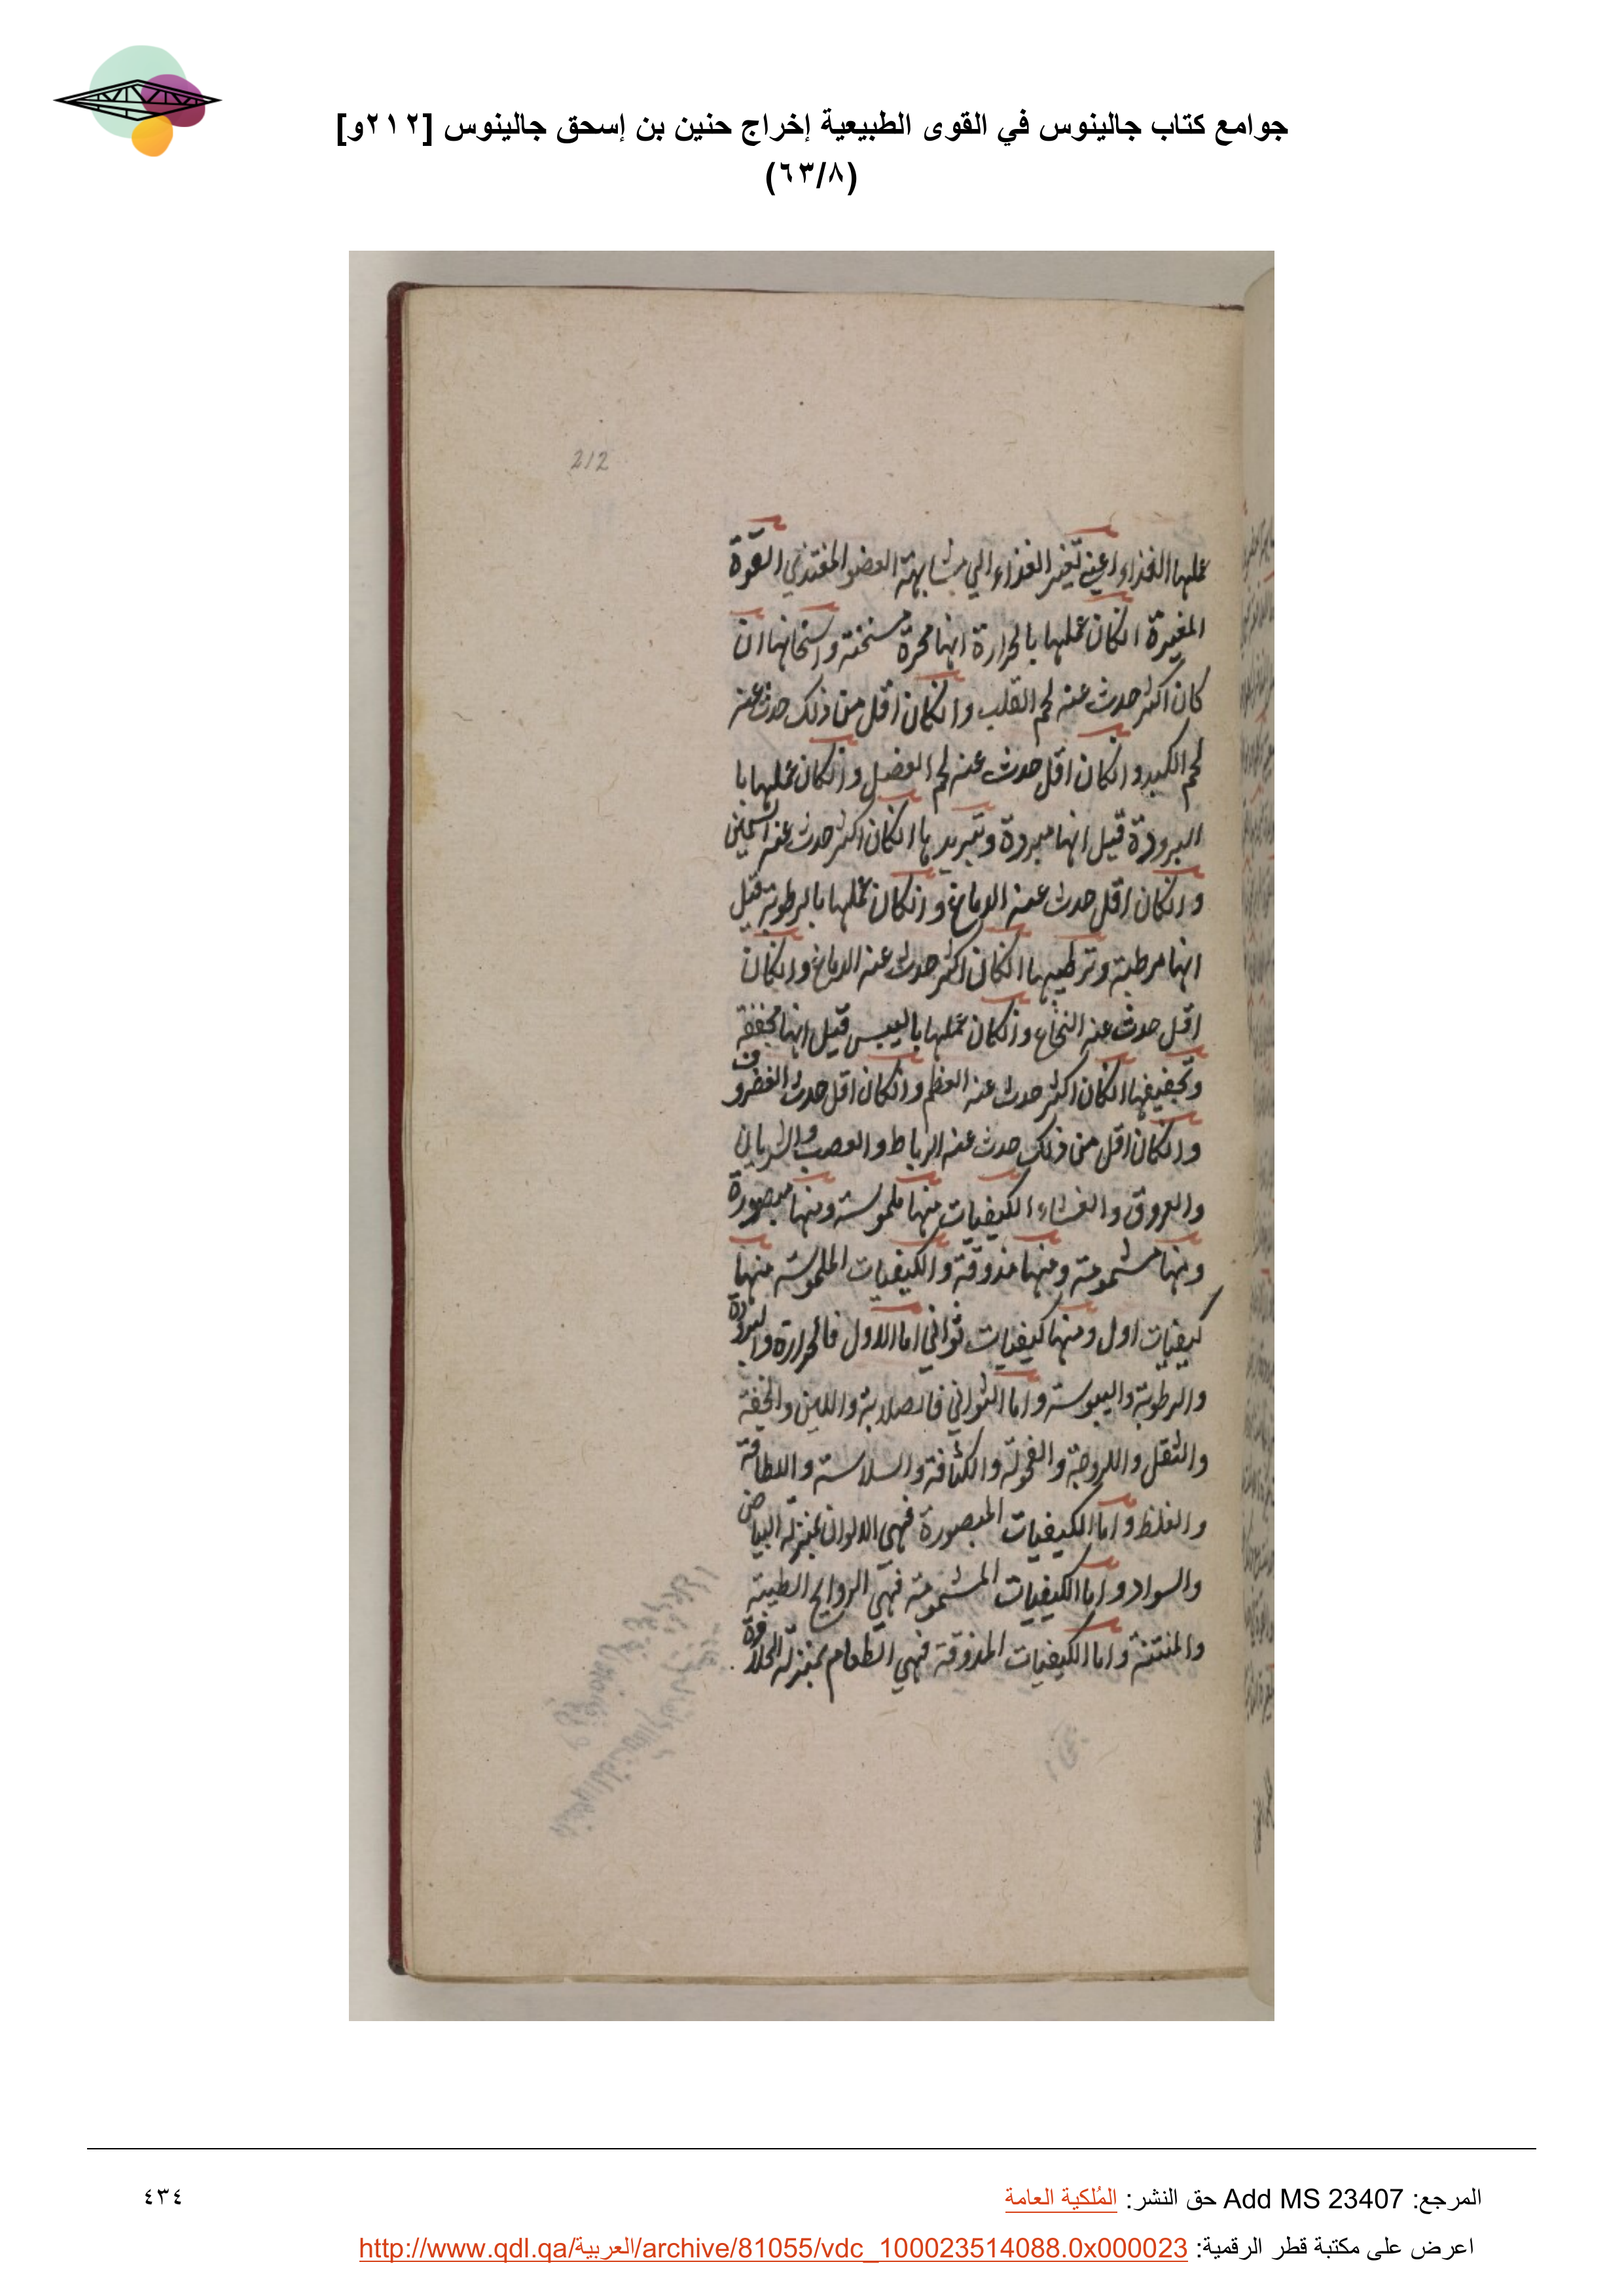 جوامع كتاب جالينوس في القوى الطبيعية إخراج حنين بن إسحق جالينوس [٢١٢و]
(٦٣/٨)
212
عملها الغذاء اعني تغيير الغذاء الي مشابهة العضو المغتذي القوة
المغيرة انكان عملها بالحرارة انها مسخنة واسخانها ان
كان اكثر حدث عنه لحم القلب وانكان اقل من ذلك حدث عنه
لحم الكبد وانكان اقل حدث عنه لحم العضل وانكان عملها با
البرودة قيل انها مبردة وتبريدها انكان اكثر حدث عنه السمين
وانكان اقل حدث عنه الدماغ وانكان عملها بالرطوبة قيل
انها مرطبة وترطيبها انكان اكثر حدث عنه الدماغ وانكان
اقل حدث عنه النخاع وانكان عملها باليبس قيل انها مجففة
وتجفيفها انكان اكثر حدث عنه العظم وانكان اقل حدث الغضروف
وانكان اقل من ذلك حدث عنه الرباط والعصب والشريان
والعروق والغشاء الكيفيات منها ملموسة ومنها مبصورة
ومنها مشمومة ومنها مذوقة والكيفيات الملموسة منها
كيفيات اول ومنها كيفيات ثواني اما الاول فالحرارة والبرودة
والرطوبة واليبوسة واما الثواني فالصلابة واللين والخفة
والثقل واللزوجة والقحولة والكثافة والسلاسة واللطافة
والغلظ واما الكيفيات المبصورة فهي الالوان بمنزلة البياض
والسواد واما الكيفيات المشمومة فهي الروايح الطيبة
والمنتنة واما الكيفيات المذوقة فهي الطعام بمنزلة الحلاوة
المرجع: Add MS 23407 حق النشر: المُلكية العامة
٤٣٤
اعرض على مكتبة قطر الرقمية: http://www.qdl.qa/العربية/archive/81055/vdc_100023514088.0x000023